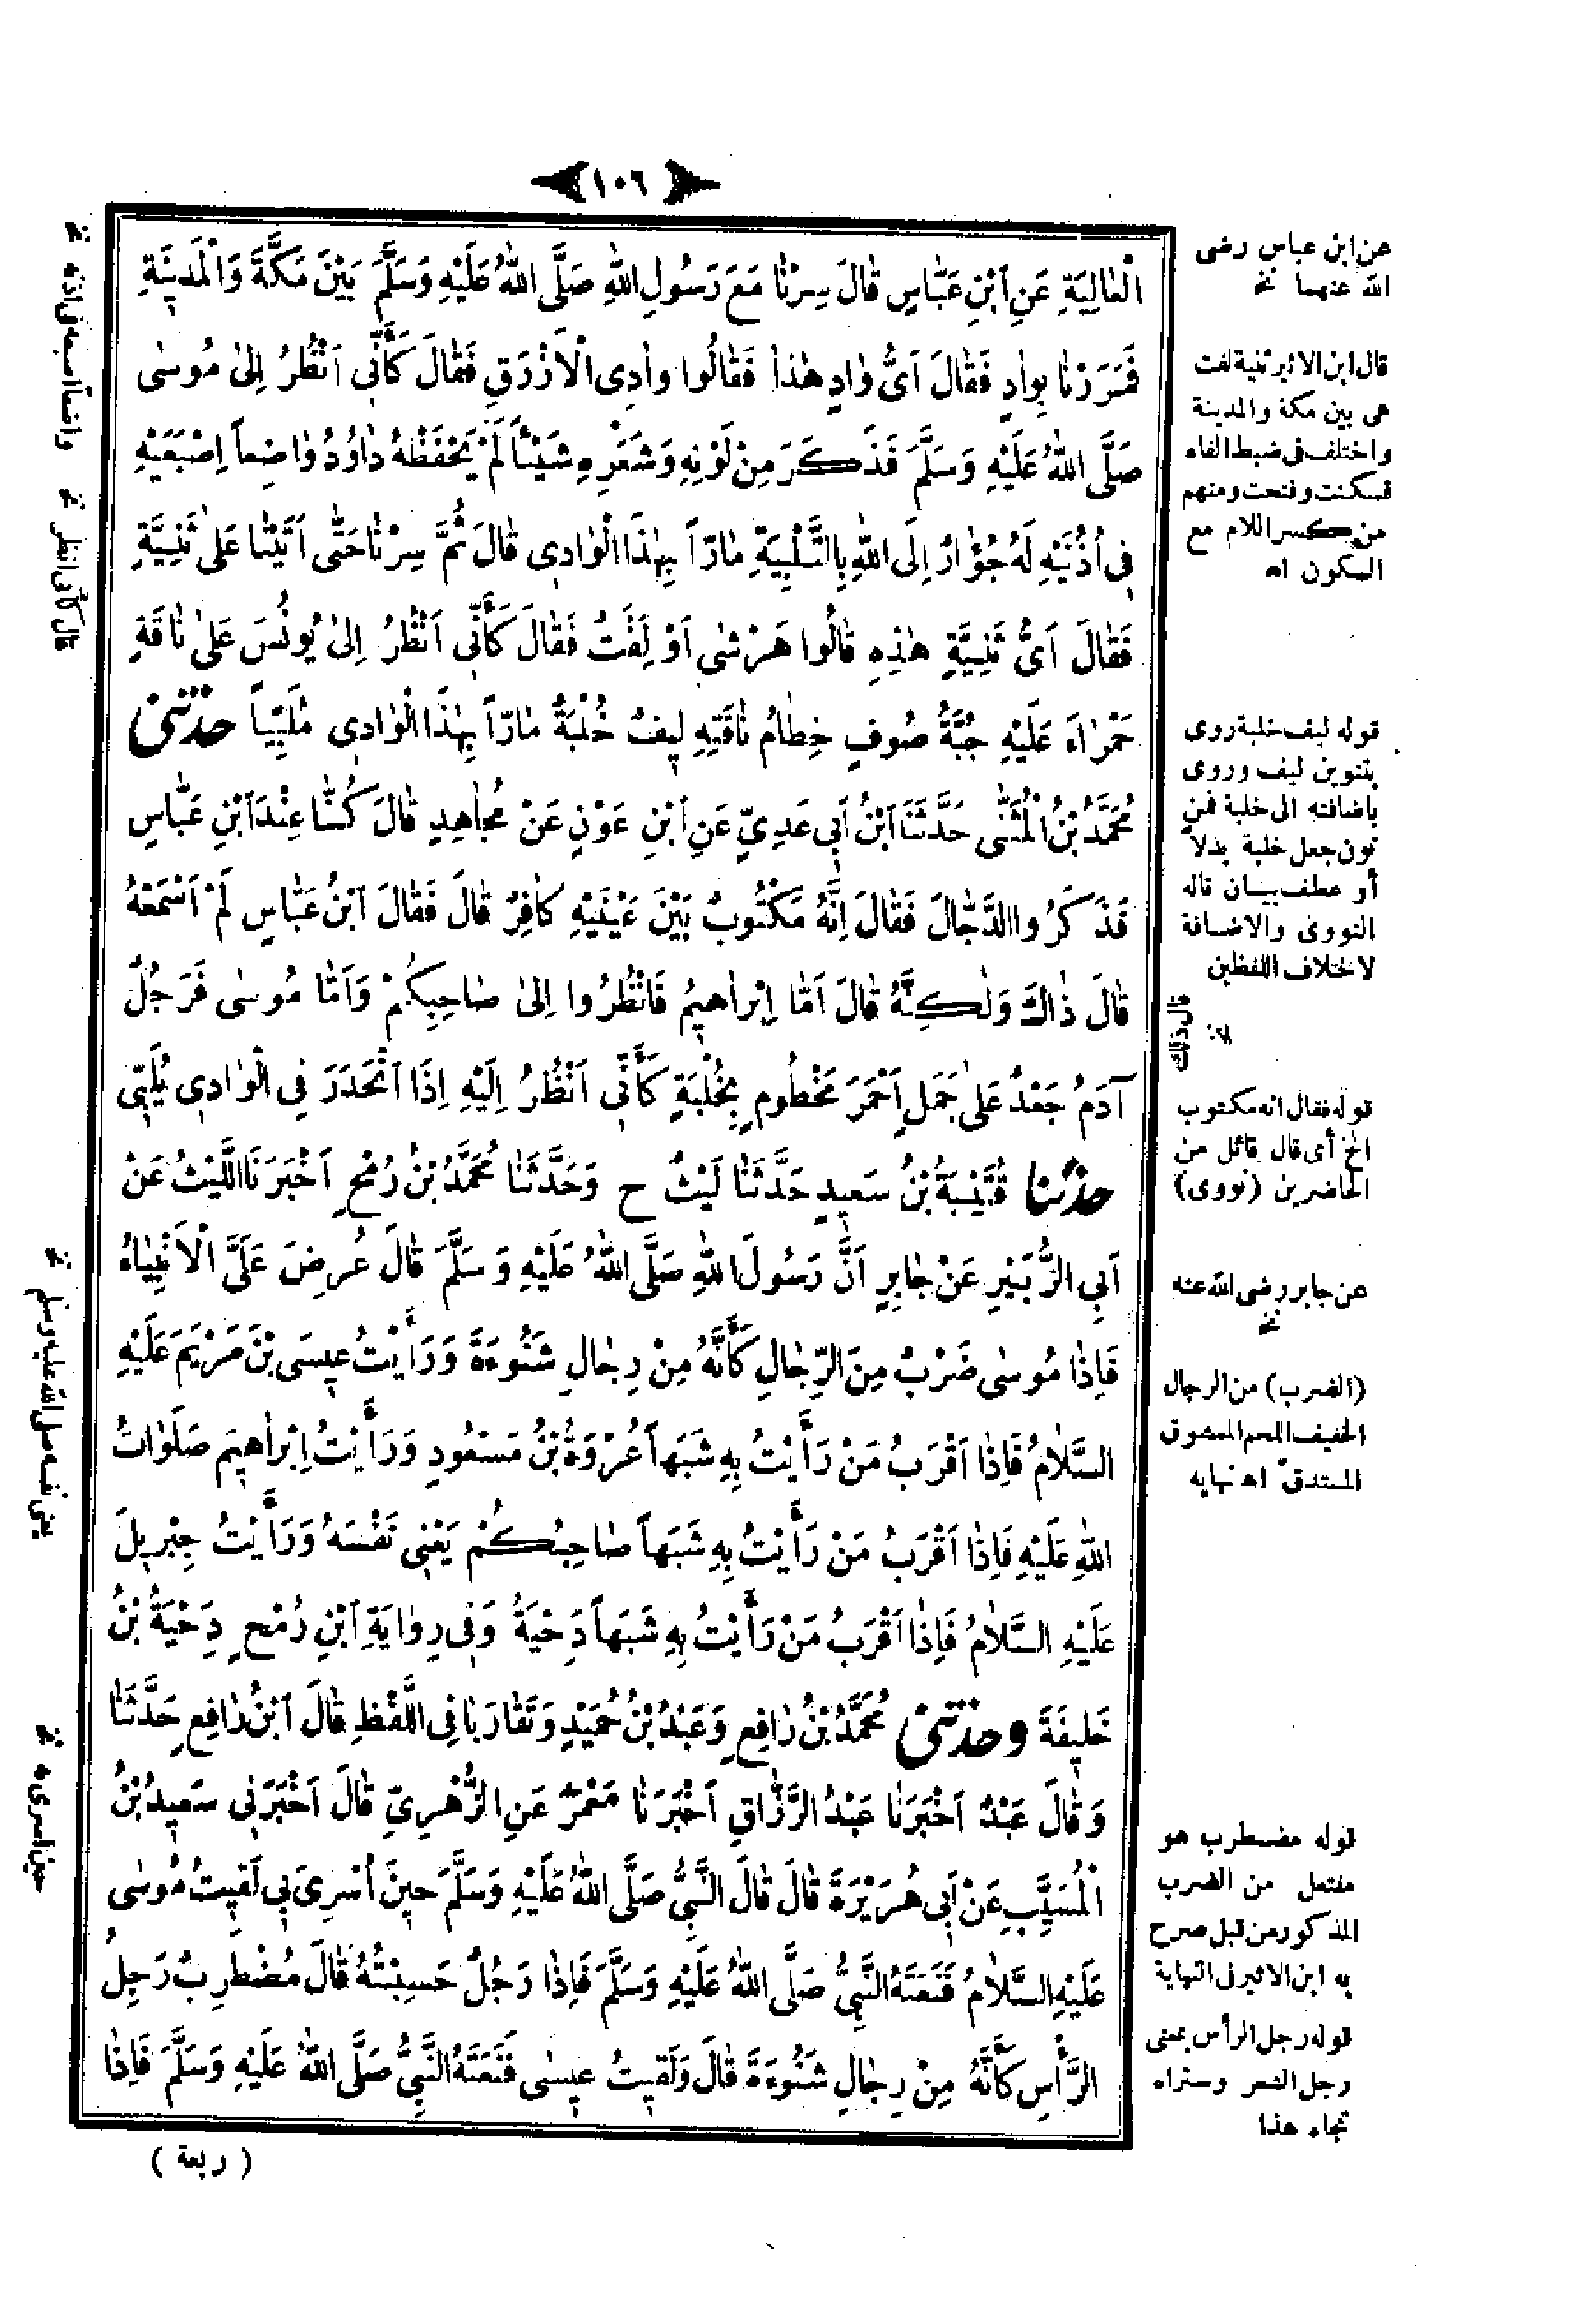 ١٠٦
الْعَالِيَةِ عَنِ ابْنِ عَبَّاسٍ قَالَ سِرْنَا مَعَ رَسُولِ اللهِ صَلَّى اللهُ عَلَيْهِ وَسَلَّمَ بَيْنَ مَكَّةَ وَالْمَدِينَةِ
فَمَرَرْنَا بِوَادٍ فَقَالَ اَىُّ وَادٍ هٰذَا فَقَالُوا وَادِى الْاَزْرَقِ فَقَالَ كَأَنِّى اَنْظُرُ اِلىٰ مُوسٰى
صَلَّى اللهُ عَلَيْهِ وَسَلَّمَ فَذَكَرَ مِنْ لَوْنِهِ وَشَعْرِهِ شَيْئاً لَمْ يَحْفَظْهُ دَاوُدُ وَاضِعاً اِصْبَعَيْهِ
فِى اُذُنَيْهِ لَهُ جُؤَارٌ اِلَى اللهِ بِالتَّلْبِيَةِ مَارّاً بِهٰذَا الْوَادِى قَالَ ثُمَّ سِرْنَا حَتّٰى اَتَيْنَا عَلىٰ ثَنِيَّةٍ
فَقَالَ اَىُّ ثَنِيَّةٍ هٰذِهِ قَالُوا هَرْشٰى اَوْ لِفْتٌ فَقَالَ كَأَنِّى اَنْظُرُ اِلىٰ يُونُسَ عَلىٰ نَاقَةٍ
حَمْرَاءَ عَلَيْهِ جُبَّةُ صُوفٍ خِطَامُ نَاقَتِهِ لِيفٌ خُلْبَةٌ مَارّاً بِهٰذَا الْوَادِى مُلَبِّياً حدثنى
مُحَمَّدُ بْنُ الْمُثَنّٰى حَدَّثَنَا ابْنُ اَبِى عَدِيٍّ عَنِ ابْنِ عَوْنٍ عَنْ مُجَاهِدٍ قَالَ كُنَّا عِنْدَ ابْنِ عَبَّاسٍ
فَذَكَرُوا الدَّجَّالَ فَقَالَ اِنَّهُ مَكْتُوبٌ بَيْنَ عَيْنَيْهِ كَافِرٌ قَالَ فَقَالَ ابْنُ عَبَّاسٍ لَمْ اَسْمَعْهُ
قَالَ ذَاكَ وَلٰكِنَّهُ قَالَ اَمَّا اِبْرَاهِيمُ فَانْظُرُوا اِلىٰ صَاحِبِكُمْ وَاَمَّا مُوسٰى فَرَجُلٌ
آدَمُ جَعْدٌ عَلىٰ جَمَلٍ اَحْمَرَ مَخْطُومٍ بِخُلْبَةٍ كَأَنِّى اَنْظُرُ اِلَيْهِ اِذَا انْحَدَرَ فِى الْوَادِى يُلَبِّى
حدثنا قُتَيْبَةُ بْنُ سَعِيدٍ حَدَّثَنَا لَيْثٌ ح وَحَدَّثَنَا مُحَمَّدُ بْنُ رُمْحٍ اَخْبَرَنَا اللَّيْثُ عَنْ
اَبِى الزُّبَيْرِ عَنْ جَابِرٍ اَنَّ رَسُولَ اللهِ صَلَّى اللهُ عَلَيْهِ وَسَلَّمَ قَالَ عُرِضَ عَلَىَّ الْاَنْبِيَاءُ
فَاِذَا مُوسٰى ضَرْبٌ مِنَ الرِّجَالِ كَأَنَّهُ مِنْ رِجَالِ شَنُوءَةَ وَرَأَيْتُ عِيسَى بْنَ مَرْيَمَ عَلَيْهِ
السَّلَامُ فَاِذَا اَقْرَبُ مَنْ رَأَيْتُ بِهِ شَبَهاً عُرْوَةُ بْنُ مَسْعُودٍ وَرَأَيْتُ اِبْرَاهِيمَ صَلَوَاتُ
اللهِ عَلَيْهِ فَاِذَا اَقْرَبُ مَنْ رَأَيْتُ بِهِ شَبَهاً صَاحِبُكُمْ يَعْنِى نَفْسَهُ وَرَأَيْتُ جِبْرِيلَ
عَلَيْهِ السَّلَامُ فَاِذَا اَقْرَبُ مَنْ رَأَيْتُ بِهِ شَبَهاً دَِحْيَةُ وَفِى رِوَايَةِ ابْنِ رُمْحٍ دَِحْيَةُ بْنُ
خَلِيفَةَ وحدثنى مُحَمَّدُ بْنُ رَافِعٍ وَعَبْدُ بْنُ حُمَيْدٍ وَتَقَارَبَا فِى اللَّفْظِ قَالَ ابْنُ رَافِعٍ حَدَّثَنَا
وَقَالَ عَبْدٌ اَخْبَرَنَا عَبْدُ الرَّزَّاقِ اَخْبَرَنَا مَعْمَرٌ عَنِ الزُّهْرِيِّ قَالَ اَخْبَرَنِى سَعِيدُ بْنُ
الْمُسَيَّبِ عَنْ اَبِى هُرَيْرَةَ قَالَ قَالَ النَّبِىُّ صَلَّى اللهُ عَلَيْهِ وَسَلَّمَ حِينَ اُسْرِىَ بِى لَقِيتُ مُوسٰى
عَلَيْهِ السَّلَامُ فَنَعَتَهُ النَّبِىُّ صَلَّى اللهُ عَلَيْهِ وَسَلَّمَ فَاِذَا رَجُلٌ حَسِبْتُهُ قَالَ مُضْطَرِبٌ رَجِلُ
الرَّأْسِ كَأَنَّهُ مِنْ رِجَالِ شَنُوءَةَ قَالَ وَلَقِيتُ عِيسٰى فَنَعَتَهُ النَّبِىُّ صَلَّى اللهُ عَلَيْهِ وَسَلَّمَ فَاِذَا
( ربعة )
عن ابن عباس رضى
الله عنهما نخ
قال ابن الاثير ثنية لفت
هى بين مكة والمدينة
واختلف فى ضبط الفاء
فسكنت وفتحت ومنهم
من كسر اللام مع
السكون اه
قوله ليف خلبة روى
بتنوين ليف وروى
باضافته الى خلبة فمن
نون جعل خلبة بدلا
أو عطف بيان قاله
النووى والاضافة
لاختلاف اللفظين
قال ذلك
نخ
قوله فقال انه مكتوب
الخ أى قال قائل من
الحاضرين (نووى)
عن جابر رضى الله عنه
نخ
(الضرب) من الرجال
الخفيف اللحم الممشوق
المستدق اه نهايه
قوله مضطرب هو
مفتعل من الضرب
المذكور من قبل صرح
به ابن الاثير فى النهاية
قوله رجل الرأس بمعنى
رجل الشعر وستراه
تجاه هذا
واضعاً اصبعه فى اذنه نخ
قال كأنى انظر نخ
يعنى نفسه صلى الله عليه وسلم نخ
حين اسرى به نخ